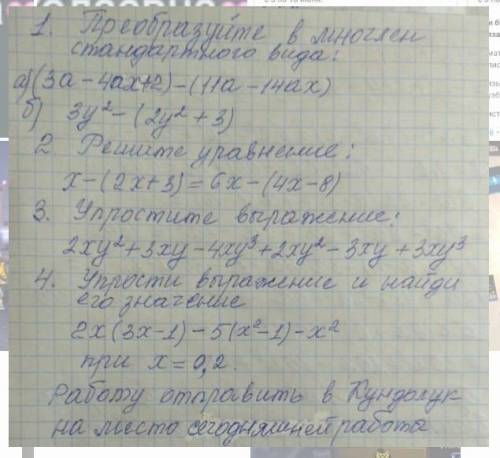 1. Преобразуйте в многлен
стандартного вида:
а) (3a - 4ax + 2) - (11a - 14ax)
б) 3y² - (2y² + 3)
2 Решите уравнение:
x - (2x + 3) = 6x - (4x - 8)
3. Упростите выражение:
2xy² + 3xy - 4xy³ + 2xy² - 3xy + 3xy³
4. Упрости выражение и найди
его значение
2x(3x - 1) - 5(x² - 1) - x²
при x = 0,2.
Работу отправить в Кундолук
на место сегодняшней работы.